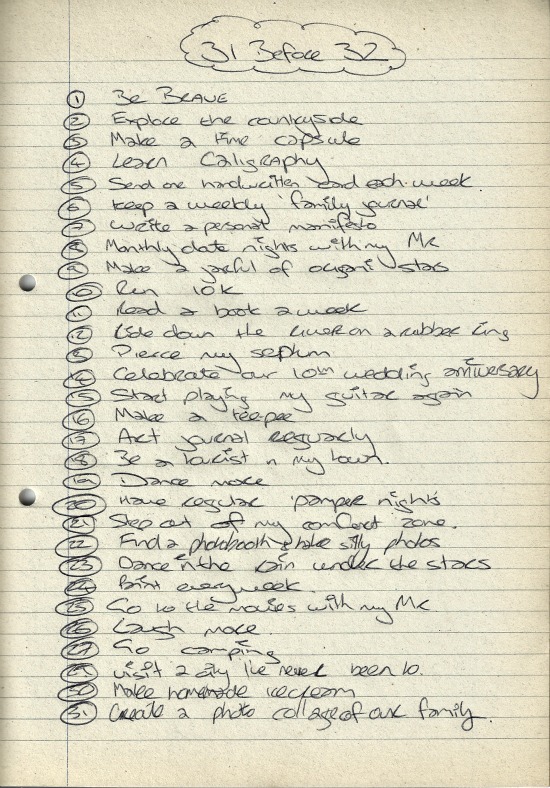 31 Before 32
1 Be BRAVE
2 Explore the countryside
3 Make a time capsule
4 Learn Caligraphy
5 Send one handwritten card each week.
6 Keep a weekly 'family journal'
7 Write a personal manifesto
8 Monthly date nights with my Mr
9 Make a jarful of origami stars
10 Run 10k
11 Read a book a week
12 Ride down the river on a rubber ring
13 Pierce my septum
14 Celebrate our 10th wedding anniversary
15 Start playing my guitar again
16 Make a teepee
17 Art journal reguarly
18 Be a tourist in my town.
19 Dance more
20 Have regular 'pamper nights'
21 Step out of my comfort zone.
22 Find a photobooth & take silly photos
23 Dance in the rain under the stars
24 Paint every week.
25 Go to the movies with my Mr.
26 Laugh more.
27 Go camping
29 Visit a city I've never been to.
30 Make homemade icecream
31 Create a photo collage of our family.